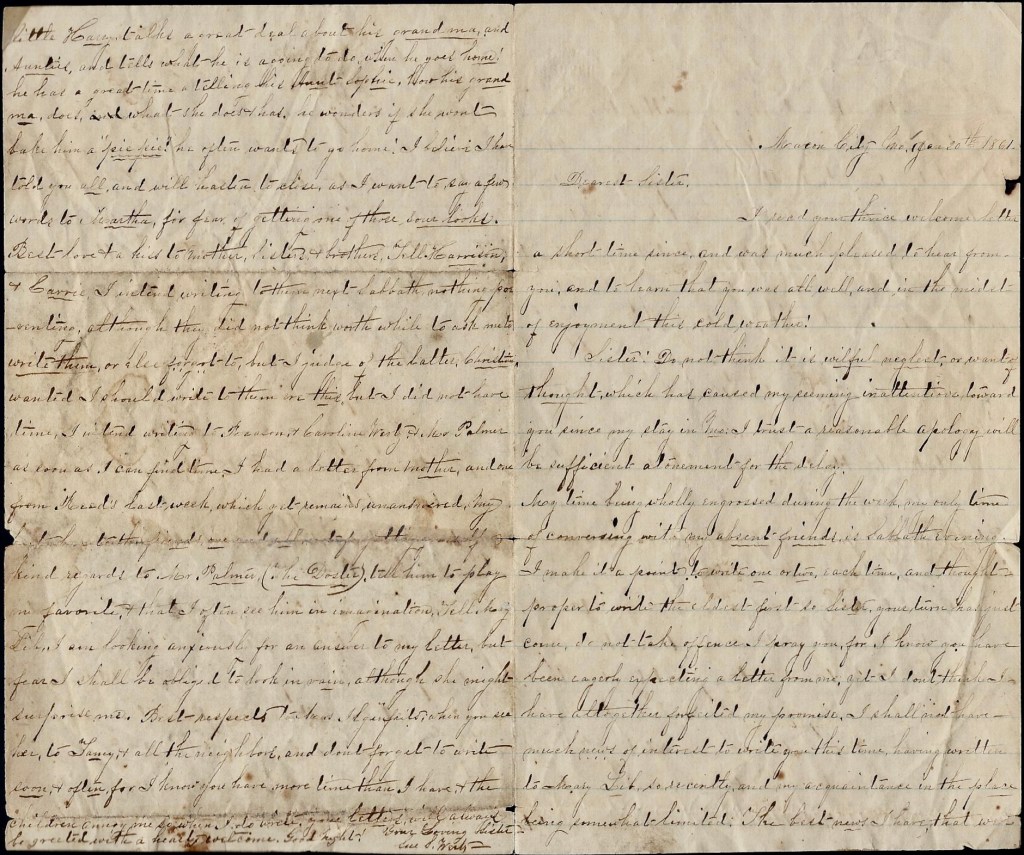 little Harry talks a great deal about his grand ma, and
Aunties, and tells what he is a going to do, when he goes home!
he has a great time a telling his Aunt Sophie, How his grand
ma, does, and what she does & has, he wonders if she wont
bake him a "pie pie"! he often wants to go home! I believe I have
told you all, and will hasten to close, as I want to say a few
words to Martha, for fear of getting one of those sour looks.
Best love & a kiss to mother, Sisters, & brothers, Tell Harrison,
& Carrie, I intend writing to them next Sabbath, nothing pre
-venting, although they did not think worth while to ask me to
write them, or else forgot to, but I judge of the latter,
wanted I should write to them in this, but I did not have
time, I intend writing to & Caroline & Mrs Palmer
as soon as I can find time. I had a letter from Mother, and one
from last week, which yet remains unanswered, My

kind regards to Mr. Palmer, (The), tell him to play
my favorite, & that I often see him in imagination, Tell Mary
Lib, I am looking anxiously for an answer to my letter, but
fear I shall be obliged to look in vain, although she might
surprise me. Best respects to Mrs when you see
her, to & all the neighbors, and dont forget to write
soon, & often, for I know you have more time than I have, & the
children annoy me so when I do write, your letters will always
be greeted with a hearty welcome. Good Night! Your Loving Sister
Sue S.
Macon City 20th 1861.
Dearest Sister,
I read your thrice welcome letter
a short time since, and was much pleased to hear from
you, and to learn that you was all well, and in the midst
of enjoyment this cold weather!
Sister! Do not think it is wilful neglect, or want of
thought, which has caused my seeming inattentions, toward
you since my stay in I trust a reasonable apology will
be sufficient atonement for the delay.
My time being wholly engrossed during the week, my only time
of conversing with my absent friends, is Sabbath evening.
I make it a point to write one or two, each time, and thought
proper to write the eldest first so Sister, your turn has just
come, do not take offence I pray you, for I know you have
been eagerly expecting a letter from me, yet I dont think I
have altogether forfeited my promise, I shall not have
much news of interest to write you this time, having written
to Mary Lib, so recently, and my acquaintance in the place
being somewhat limited. The best news I have, that will